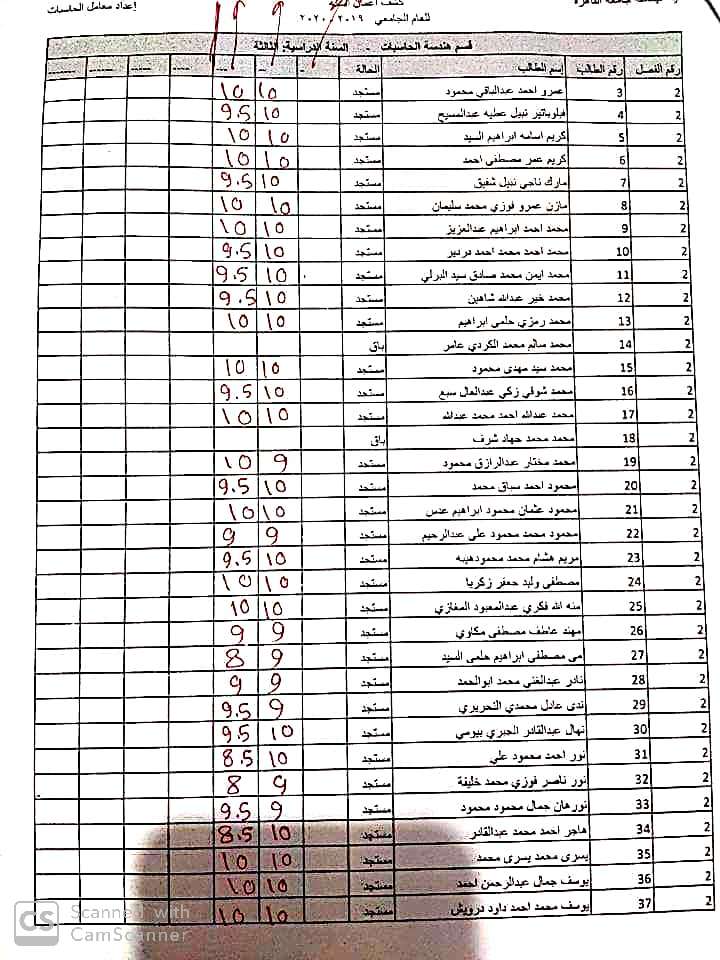 إعداد معامل الحاسبات
كشف أعمال
للعام الجامعي ٢٠١٩ - ٢٠٢٠
قسم هندسة الحاسبات - السنة الدراسية: الثالثة
رقم الفصل رقم الطالب إسم الطالب الحالة
2 3 عمرو احمد عبدالباقي محمود مستجد 10 10
2 4 فيلوباتير نبيل عطيه عبدالمسيح مستجد 10 9.5
2 5 كريم اسامه ابراهيم السيد مستجد 10 10
2 6 كريم عمر مصطفى احمد مستجد 10 10
2 7 مارك ناجي نبيل شفيق مستجد 10 9.5
2 8 مازن عمرو فوزي محمد سليمان مستجد 10 10
2 9 محمد احمد ابراهيم عبدالعزيز مستجد 10 10
2 10 محمد احمد محمد احمد دردير مستجد 10 9.5
2 11 محمد ايمن محمد صادق سيد البرلي مستجد 10 9.5
2 12 محمد خير عبدالله شاهين مستجد 10 9.5
2 13 محمد رمزي حلمي ابراهيم مستجد 10 10
2 14 محمد سالم محمد الكردي عامر باق
2 15 محمد سيد مهدى محمود مستجد 10 10
2 16 محمد شوقي زكي عبدالعال سبع مستجد 10 9.5
2 17 محمد عبدالله احمد محمد عبدالله مستجد 10 10
2 18 محمد محمد جهاد شرف باق
2 19 محمد مختار عبدالرازق محمود مستجد 9 10
2 20 محمود احمد سباق محمد مستجد 10 9.5
2 21 محمود عثمان محمود ابراهيم عدس مستجد 10 10
2 22 محمود محمد محمود على عبدالرحيم مستجد 9 9
2 23 مريم هشام محمد محمودهيبه مستجد 10 9.5
2 24 مصطفى وليد جعفر زكريا مستجد 10 10
2 25 منه الله فكري عبدالمعبود المغازي مستجد 10 10
2 26 مهند عاطف مصطفى مكاوي مستجد 9 9
2 27 مى مصطفى ابراهيم حلمى السيد مستجد 9 8
2 28 نادر عبدالغنى محمد ابوالحمد مستجد 9 9
2 29 ندى عادل محمدي التحريري مستجد 9 9.5
2 30 نهال عبدالقادر الجبري بيومي مستجد 10 9.5
2 31 نور احمد محمود علي مستجد 10 8.5
2 32 نور ناصر فوزي محمد خليفة مستجد 9 8
2 33 نورهان جمال محمود محمود مستجد 9 9.5
2 34 هاجر احمد محمد عبدالقادر مستجد 10 8.5
2 35 يسرى محمد يسرى محمد مستجد 10 10
2 36 يوسف جمال عبدالرحمن احمد مستجد 10 10
2 37 يوسف محمد احمد داود درويش مستجد 10 10
CS Scanned with
CamScanner